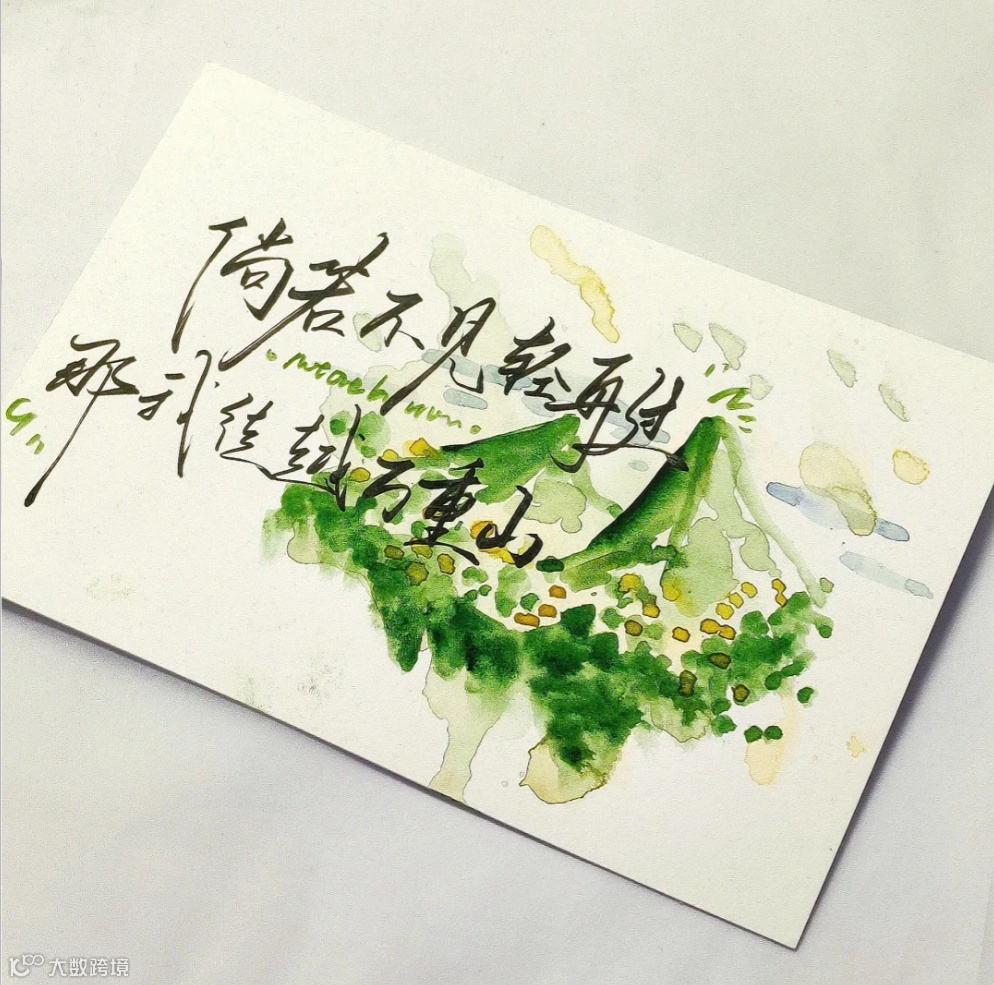 倘若不见轻舟过
那我徒越万重山
大数跨境